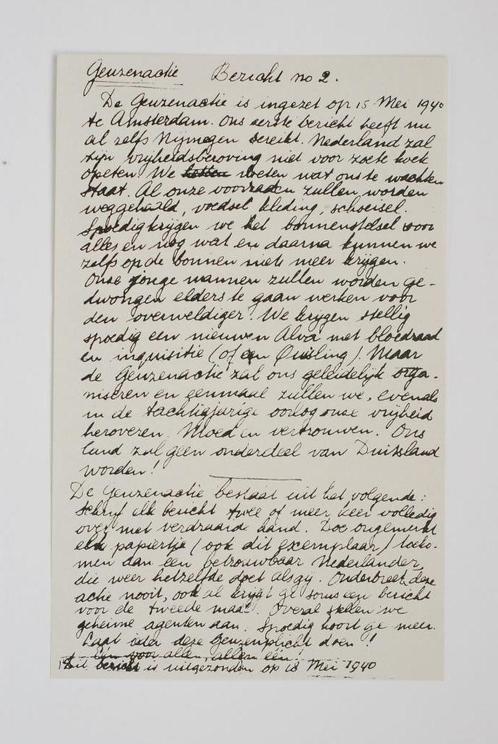 Geuzenactie Bericht no 2.
De Geuzenactie is ingezet op 15 Mei 1940
te Amsterdam. Ons eerste bericht heeft nu
al zelfs Nijmegen bereikt. Nederland zal
zijn vrijheidsberoving niet voor zoete koek
opeten. We weten wat ons te wachten
staat. Al onze voorraden zullen worden
weggehaald, voedsel kleding, schoeisel.
Spoedig krijgen we het bonnenstelsel voor
alles en nog wat en daarna kunnen we
zelfs op de bonnen niet meer krijgen.
Onze jonge mannen zullen worden ge-
dwongen elders te gaan werken voor
den overweldiger. We krygen stellig
spoedig een nieuwen Alva met bloedraad
en inquisitie (of een Quisling). Maar
de Geuzenactie zal ons geleidelijk orga-
niseren en eenmaal zullen we, evenals
in de tachtigjarige oorlog onze vrijheid
heroveren. Moed en vertrouwen. Ons
land zal geen onderdeel van Duitsland
worden!
De Geuzenactie bestaat uit het volgende:
Schrijf elk bericht twee of meer keer volledig
over met verdraaide hand. Doe ongemerkt
elk papiertje (ook dit exemplaar) toeko-
men aan een betrouwbaar Nederlander,
die weer hetzelfde doet als gij. Onderbreek deze
actie nooit, ook al krijgt ge soms een bericht
voor de tweede maal. Overal stellen we
geheime agenten aan. Spoedig hoort ge meer.
Laat ieder deze Geuzenplicht doen!
Eén voor allen, allen één!
Dit bericht is uitgezonden op 18 Mei 1940